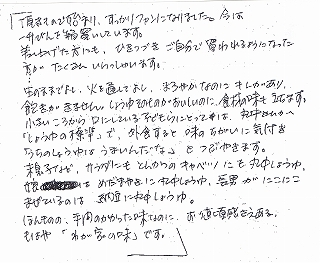 「頂きもので始まり、すっかりファンになりました。今は
一升びんで毎回買っています。
差し上げた方にも、ひきつづきご自分で買われるようになった
方がたくさんいらっしゃいます。
…
生のままでよし、火を通してよし、まろやかなのにキレがあり、
飽きがきません。しょうゆそのものがおいしいのに、食材の味も立ちます。
小さいころから口にしている子どもらにとっては、丸中さんが
「しょうゆの標準」で、外食すると味のちがいに気付き
「うちのしょうゆはうまいんだな」とつぶやきます。
息子などは、サラダにもとんかつのキャベツにも丸中しょうゆ、
娘は めだまやきに丸中しょうゆ、長男がにこにこ
まぜているのは 納豆に丸中しょうゆ。
ほんものの、手間のかかった味なのに、お値頃感さえある、
もはや「わが家の味」です。」